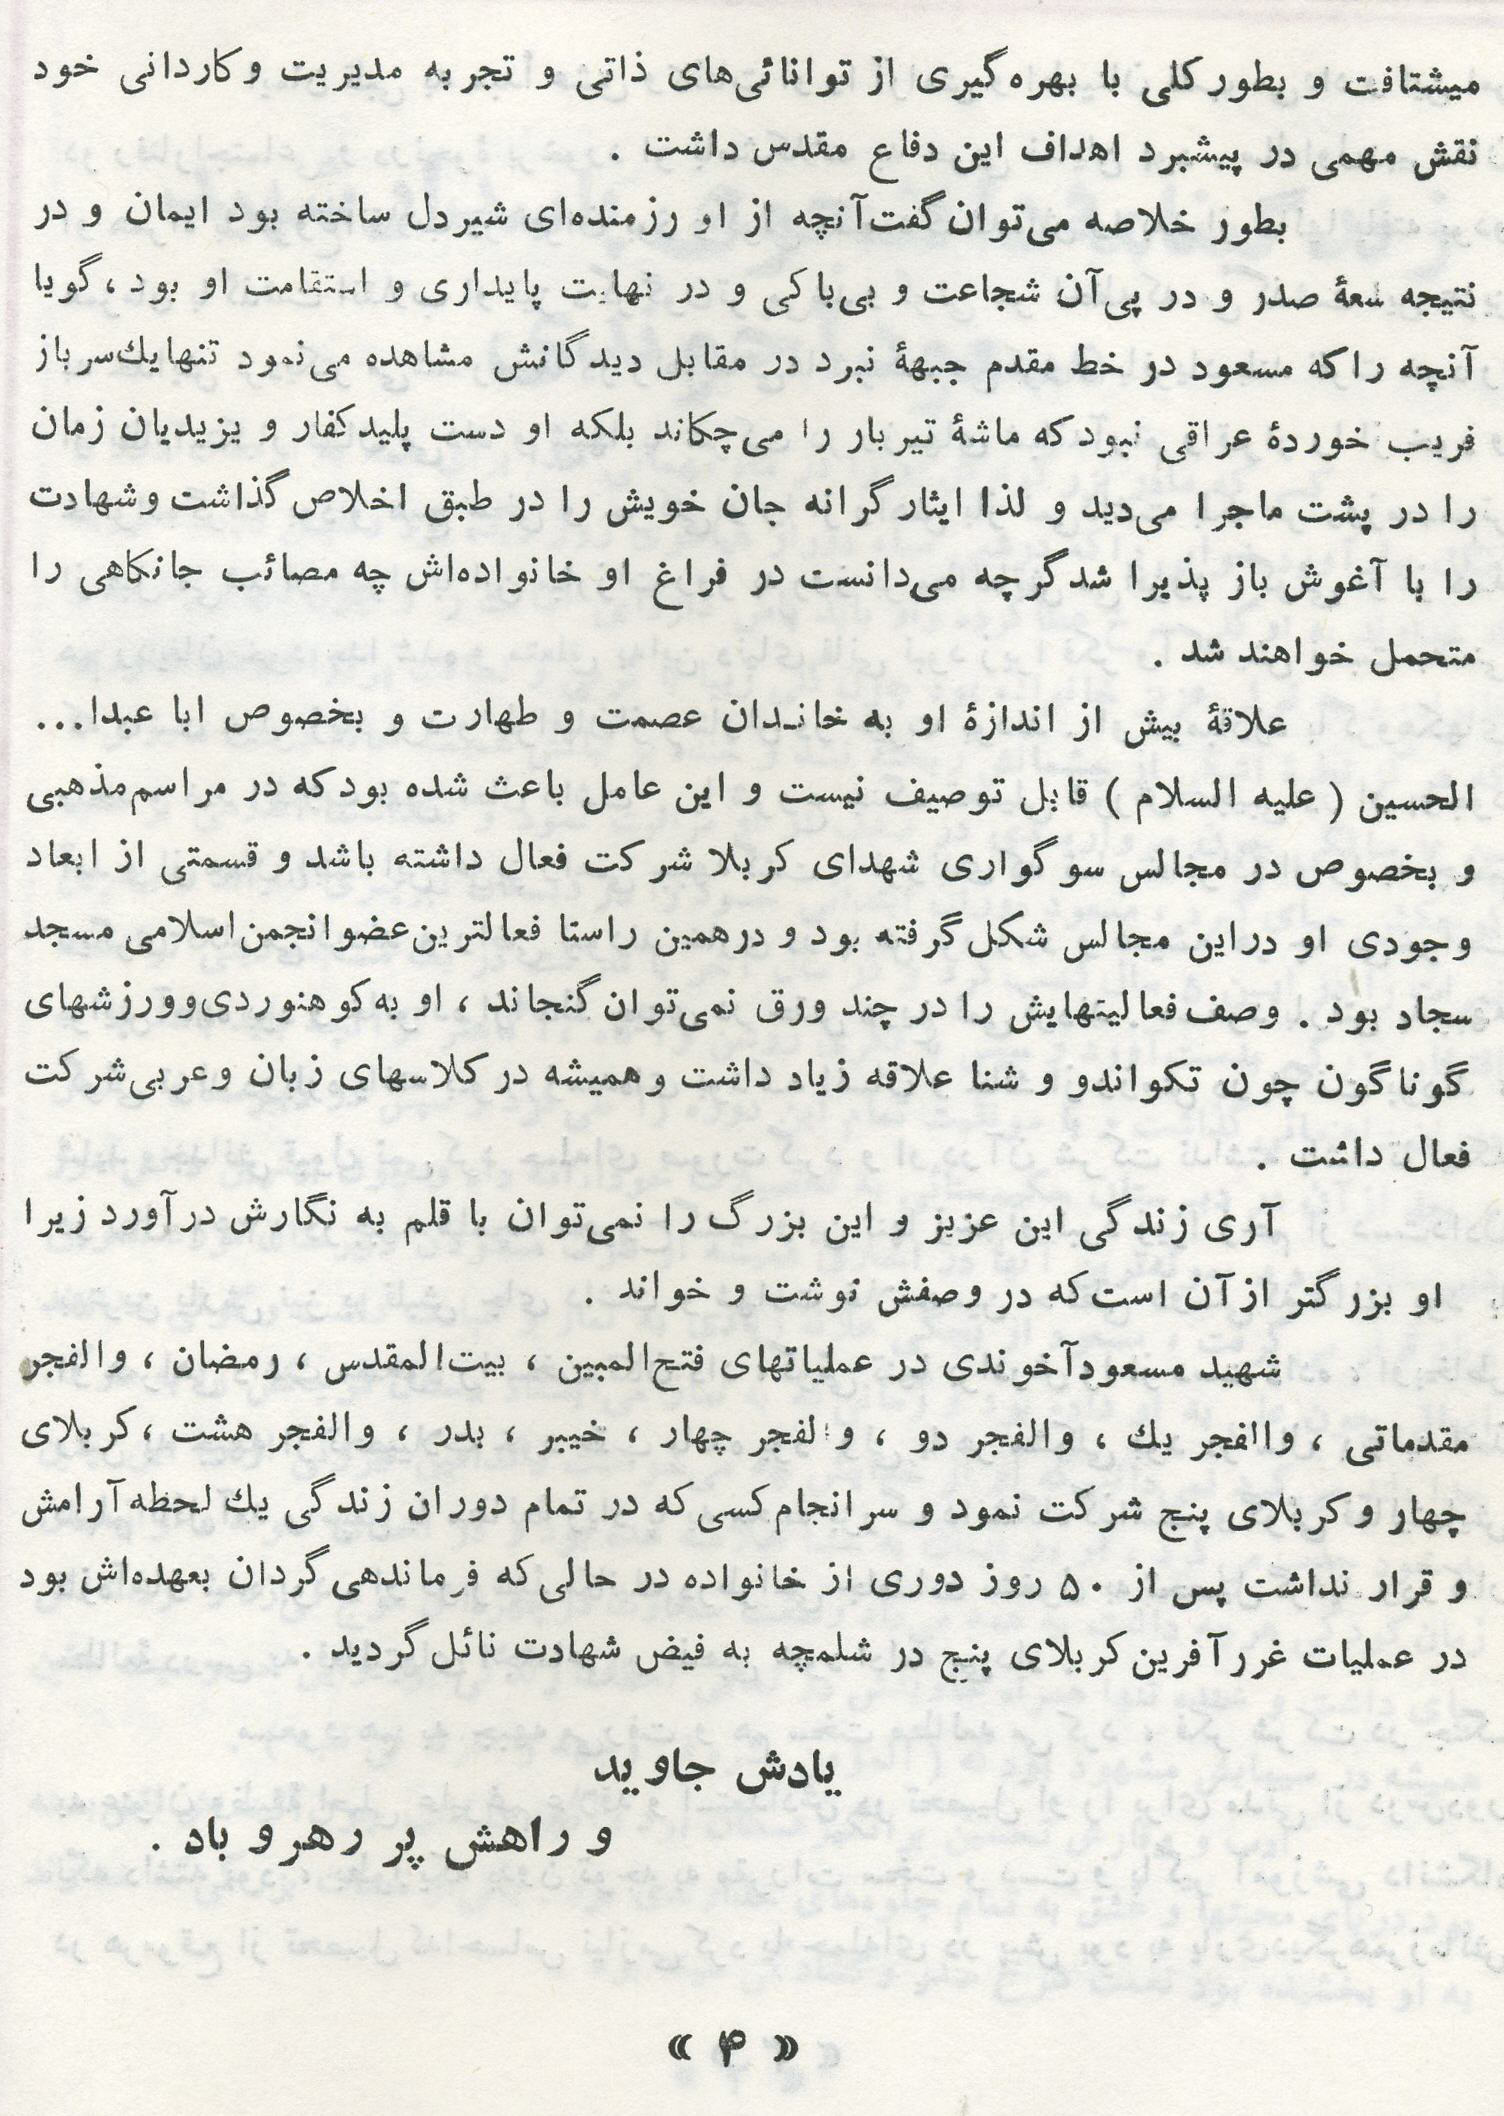 میشتافت و بطورکلی با بهره‌گیری از توانائی‌های ذاتی و تجربه مدیریت وکاردانی خود
نقش مهمی در پیشبرد اهداف این دفاع مقدس داشت .
بطور خلاصه می‌توان گفت‌آنچه از او رزمنده‌ای شیردل ساخته بود ایمان و در
نتیجه سعهٔ صدر و در پی‌آن شجاعت و بی‌باکی و در نهایت پایداری و استقامت او بود ، گویا
آنچه راکه مسعود در خط مقدم جبههٔ نبرد در مقابل دیدگانش مشاهده می‌نمود تنهایك‌سرباز
فریب خوردهٔ عراقی نبودکه ماشهٔ تیربار را می‌چکاند بلکه او دست پلیدکفار و یزیدیان زمان
را در پشت ماجرا می‌دید و لذا ایثارگرانه جان خویش را در طبق اخلاص گذاشت وشهادت
را با آغوش باز پذیرا شدگرچه می‌دانست در فراغ او خانواده‌اش چه مصائب جانکاهی را
متحمل خواهند شد .
علاقهٔ بیش از اندازهٔ او به خاندان عصمت و طهارت و بخصوص ابا عبدا...
الحسین ( علیه السلام ) قابل توصیف نیست و این عامل باعث شده بودکه در مراسم‌مذهبی
و بخصوص در مجالس سوگواری شهدای کربلا شرکت فعال داشته باشد و قسمتی از ابعاد
وجودی او دراین مجالس شکل‌گرفته بود و درهمین راستا فعالترین‌عضوانجمن‌اسلامی مسجد
سجاد بود . وصف‌فعالیتهایش را در چند ورق نمی‌توان‌گنجاند ، او به‌کوهنوردی‌وورزشهای
گوناگون چون تکواندو و شنا علاقه زیاد داشت وهمیشه درکلاسهای زبان وعربی‌شرکت
فعال داشت .
آری زندگی این عزیز و این بزرگ را نمی‌توان با قلم به نگارش درآورد زیرا
او بزرگتر ازآن است‌که در وصفش نوشت و خواند .
شهید مسعودآخوندی در عملیاتهای فتح‌المبین ، بیت‌المقدس ، رمضان ، والفجر
مقدماتی ، واالفجر یك ، والفجر دو ، والفجر چهار ، خیبر ، بدر ، والفجر هشت ، کربلای
چهار وکربلای پنج شرکت نمود و سرانجام‌کسی‌که در تمام دوران زندگی یك لحظه‌آرامش
و قرار نداشت پس از ۵۰ روز دوری از خانواده در حالی‌که فرماندهی‌گردان بعهده‌اش بود
در عملیات غررآفرین‌کربلای پنج در شلمچه به فیض شهادت نائل‌گردید .
یادش جاوید
و راهش پر رهرو باد .
« ۴ »